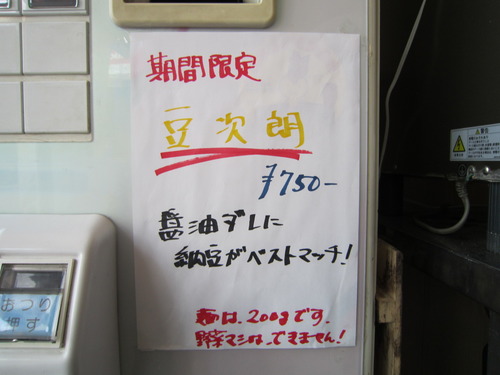 期間限定
豆次朗
¥750-
醤油ダレに
納豆がベストマッチ!
麺は、200gです。
野菜マシは、できません!
おつり
押す